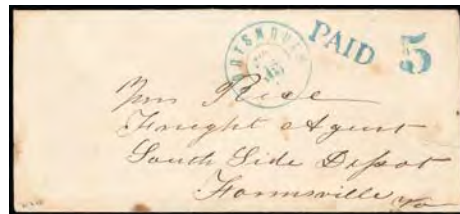 PORTSMOUTH
PAID 5
Wm Rice
Freight Agent
South Side Depot
Farmsville Va